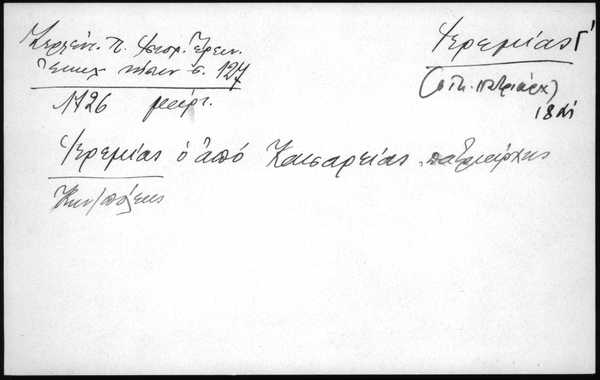 Ζερζέντ. Π. Ἱστορ. Ἔρευν.
σ. 127
1726 μάρτ.
Ἱερεμίας Γ΄
(οἰκ. πατριάρχ)
18
Ἱερεμίας ὁ ἀπό Καισαρείας πατριάρχης
Κων/πόλεως